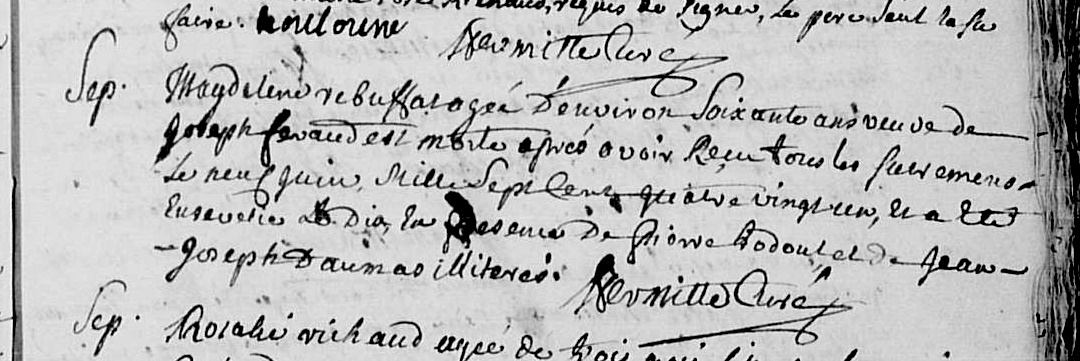 requis de signer, le pere seul la su
faire.
Hermitte Curé
Sep. Magdelene rebuffat agée D'environ Soixante ans veuve de
Joseph feraud est morte aprés avoir Reçu tous les sacremens
Le neuf juin, Mille Sept Cent quatre vingt un, Et a Eté
Ensevelie Le Dix, En presence De pierre et de jean
Joseph Daumas illiterés.
Hermitte Curé
Sep. Rosalie richaud agée de trois